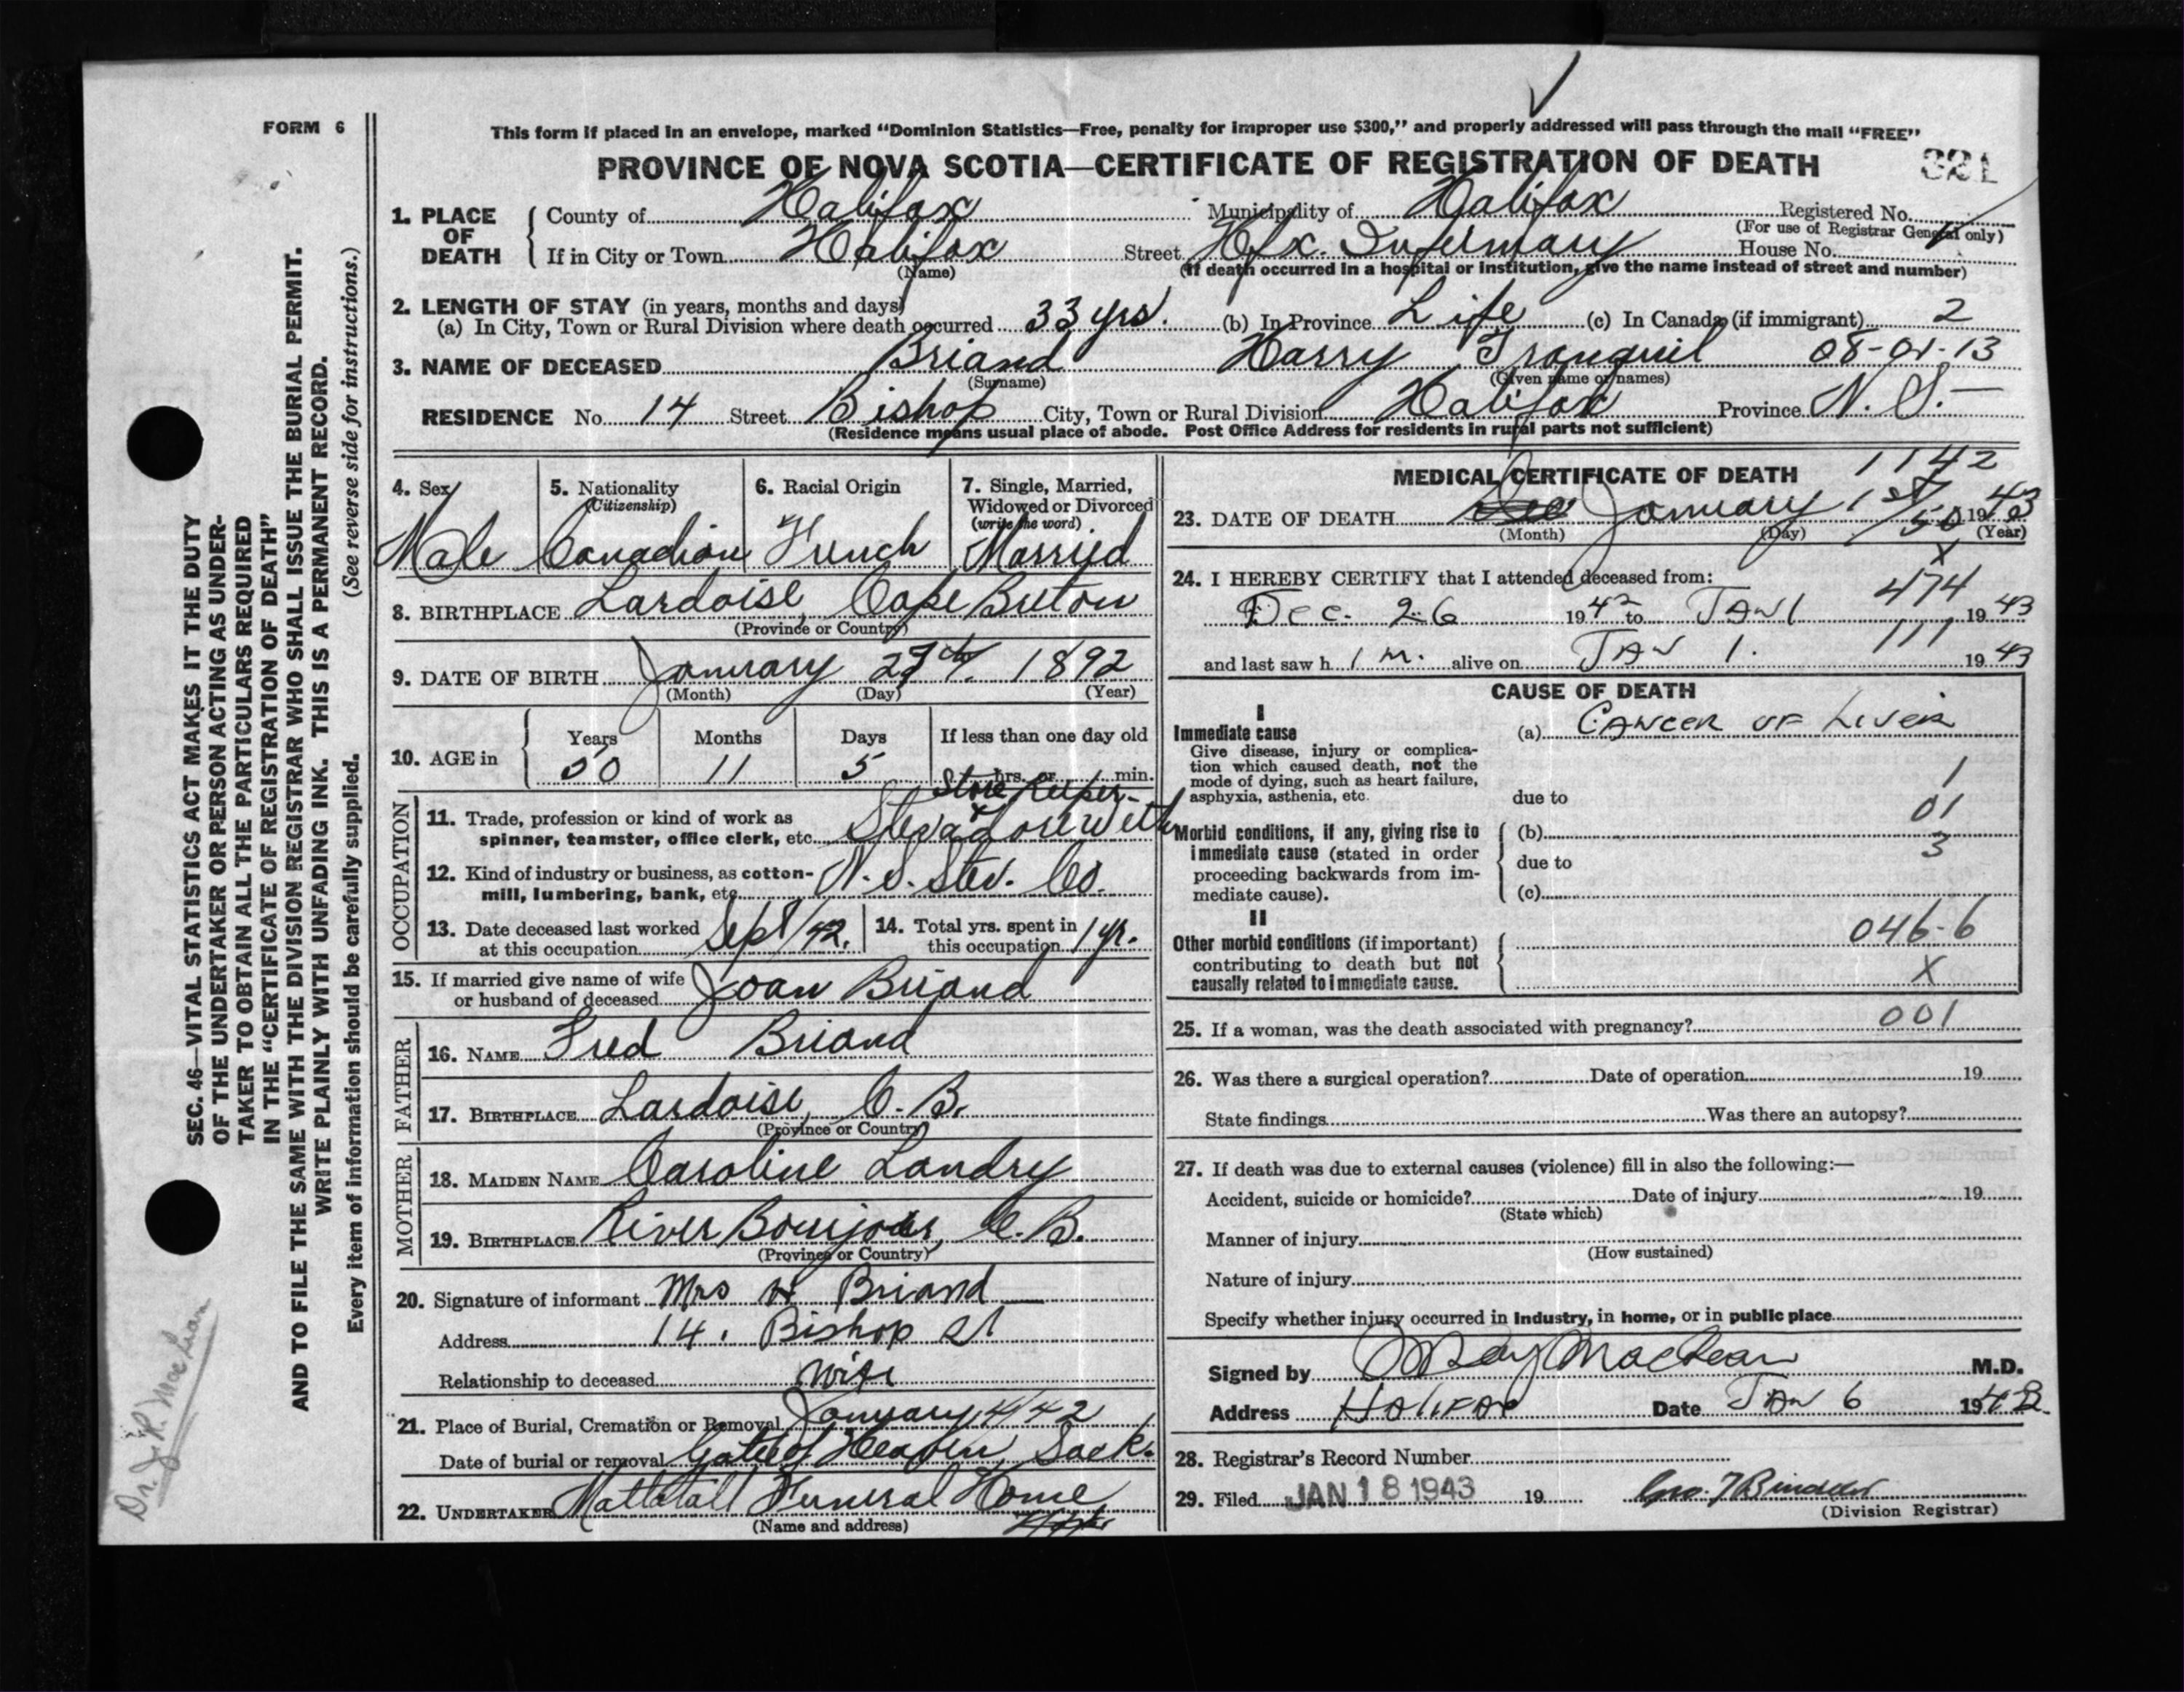 FORM 6
This form if placed in an envelope, marked "Dominion Statistics—Free, penalty for improper use $300," and properly addressed will pass through the mail "FREE"
PROVINCE OF NOVA SCOTIA—CERTIFICATE OF REGISTRATION OF DEATH
321
1. PLACE OF DEATH
County of Halifax Municipality of Halifax Registered No.
(For use of Registrar General only)
If in City or Town Halifax Street Hfx. Infirmary House No.
(Name) (If death occurred in a hospital or institution, give the name instead of street and number)
2. LENGTH OF STAY (in years, months and days)
(a) In City, Town or Rural Division where death occurred 33 yrs. (b) In Province Life (c) In Canada (if immigrant) 2
3. NAME OF DECEASED Briand Harry Tranquil 08-01-13
(Surname) (Given name or names)
RESIDENCE No. 14 Street Bishop City, Town or Rural Division Halifax Province N.S.—
(Residence means usual place of abode. Post Office Address for residents in rural parts not sufficient)
4. Sex Male
5. Nationality (Citizenship) Canadian
6. Racial Origin French
7. Single, Married, Widowed or Divorced (write the word) Married
8. BIRTHPLACE Lardoise, Cape Breton
(Province or Country)
9. DATE OF BIRTH January 27th. 1892
(Month) (Day) (Year)
10. AGE in Years 50 Months 11 Days 5 If less than one day old hrs. or min.
OCCUPATION
Store Keeper-
11. Trade, profession or kind of work as spinner, teamster, office clerk, etc. Stevadore with
12. Kind of industry or business, as cotton-mill, lumbering, bank, etc. N.S. Stev. Co.
13. Date deceased last worked at this occupation Sept/42. 14. Total yrs. spent in this occupation 1 yr.
15. If married give name of wife or husband of deceased Joan Briand
FATHER
16. NAME Fred Briand
17. BIRTHPLACE Lardoise, C.B.
(Province or Country)
MOTHER
18. MAIDEN NAME Caroline Landry
19. BIRTHPLACE River Bourjour, C.B.
(Province or Country)
20. Signature of informant Mrs H Briand
Address 14. Bishop St
Relationship to deceased Wife
21. Place of Burial, Cremation or Removal January 4/42
Date of burial or removal Gate of Heaven, Sack.
22. UNDERTAKER Mattatall Funeral Home
(Name and address)
MEDICAL CERTIFICATE OF DEATH 1142
23. DATE OF DEATH Dec January 1st 1943
(Month) (Day) (Year)
50
X
24. I HEREBY CERTIFY that I attended deceased from: 474
Dec. 26 1942 to JAN 1 1943
and last saw h im. alive on JAN 1. 111 1943
CAUSE OF DEATH
I
Immediate cause (a) CANCER OF LIVER
Give disease, injury or complication which caused death, not the mode of dying, such as heart failure, asphyxia, asthenia, etc.
1
due to
01
Morbid conditions, if any, giving rise to immediate cause (stated in order proceeding backwards from immediate cause).
(b)
3
due to
(c)
II
Other morbid conditions (if important) contributing to death but not causally related to immediate cause.
046-6
X
25. If a woman, was the death associated with pregnancy? 001
26. Was there a surgical operation? Date of operation 19
State findings Was there an autopsy?
27. If death was due to external causes (violence) fill in also the following:—
Accident, suicide or homicide? Date of injury 19
(State which)
Manner of injury
(How sustained)
Nature of injury
Specify whether injury occurred in industry, in home, or in public place
Signed by MacLean M.D.
Address HALIFAX Date JAN 6 1943.
28. Registrar's Record Number
29. Filed JAN 18 1943 19
(Division Registrar)
SEC. 46—VITAL STATISTICS ACT MAKES IT THE DUTY
OF THE UNDERTAKER OR PERSON ACTING AS UNDER-
TAKER TO OBTAIN ALL THE PARTICULARS REQUIRED
IN THE "CERTIFICATE OF REGISTRATION OF DEATH"
AND TO FILE THE SAME WITH THE DIVISION REGISTRAR WHO SHALL ISSUE THE BURIAL PERMIT.
WRITE PLAINLY WITH UNFADING INK. THIS IS A PERMANENT RECORD.
Every item of information should be carefully supplied. (See reverse side for instructions.)
Dr. J. R. MacLean